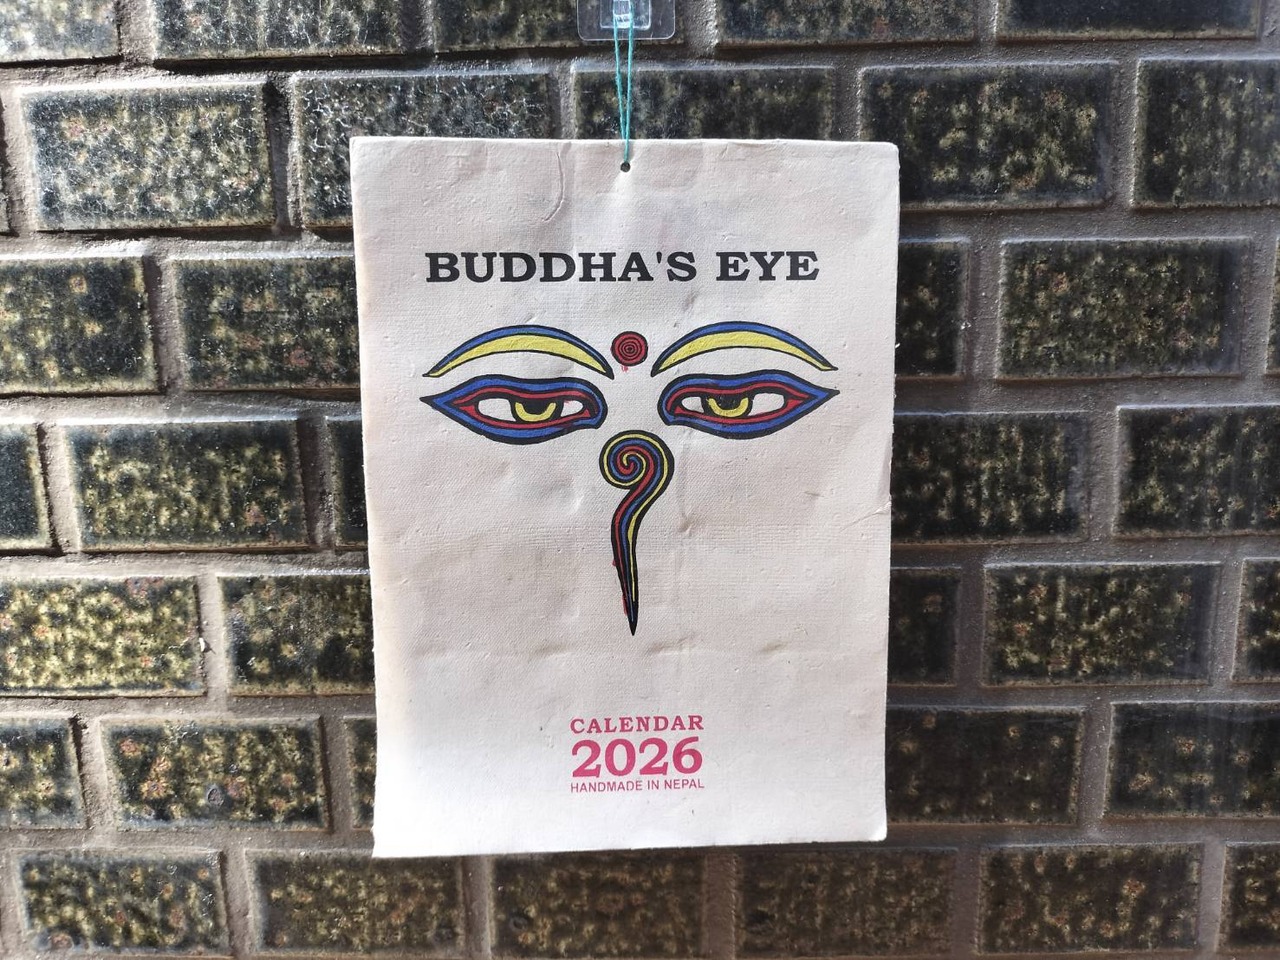 BUDDHA'S EYE
CALENDAR
2026
HANDMADE IN NEPAL